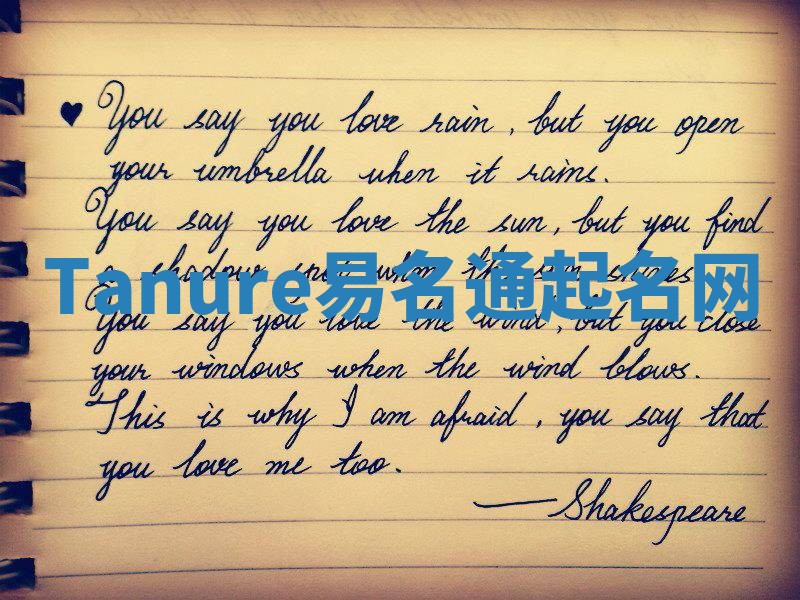 ♥ You say you love rain, but you open
your umbrella when it rains.
You say you love the sun, but you find
a shadow spot when the sun shines.
Tanure易名通起名网
You say you love the wind, but you close
your windows when the wind blows.
This is why I am afraid, you say that
you love me too.
—Shakespeare